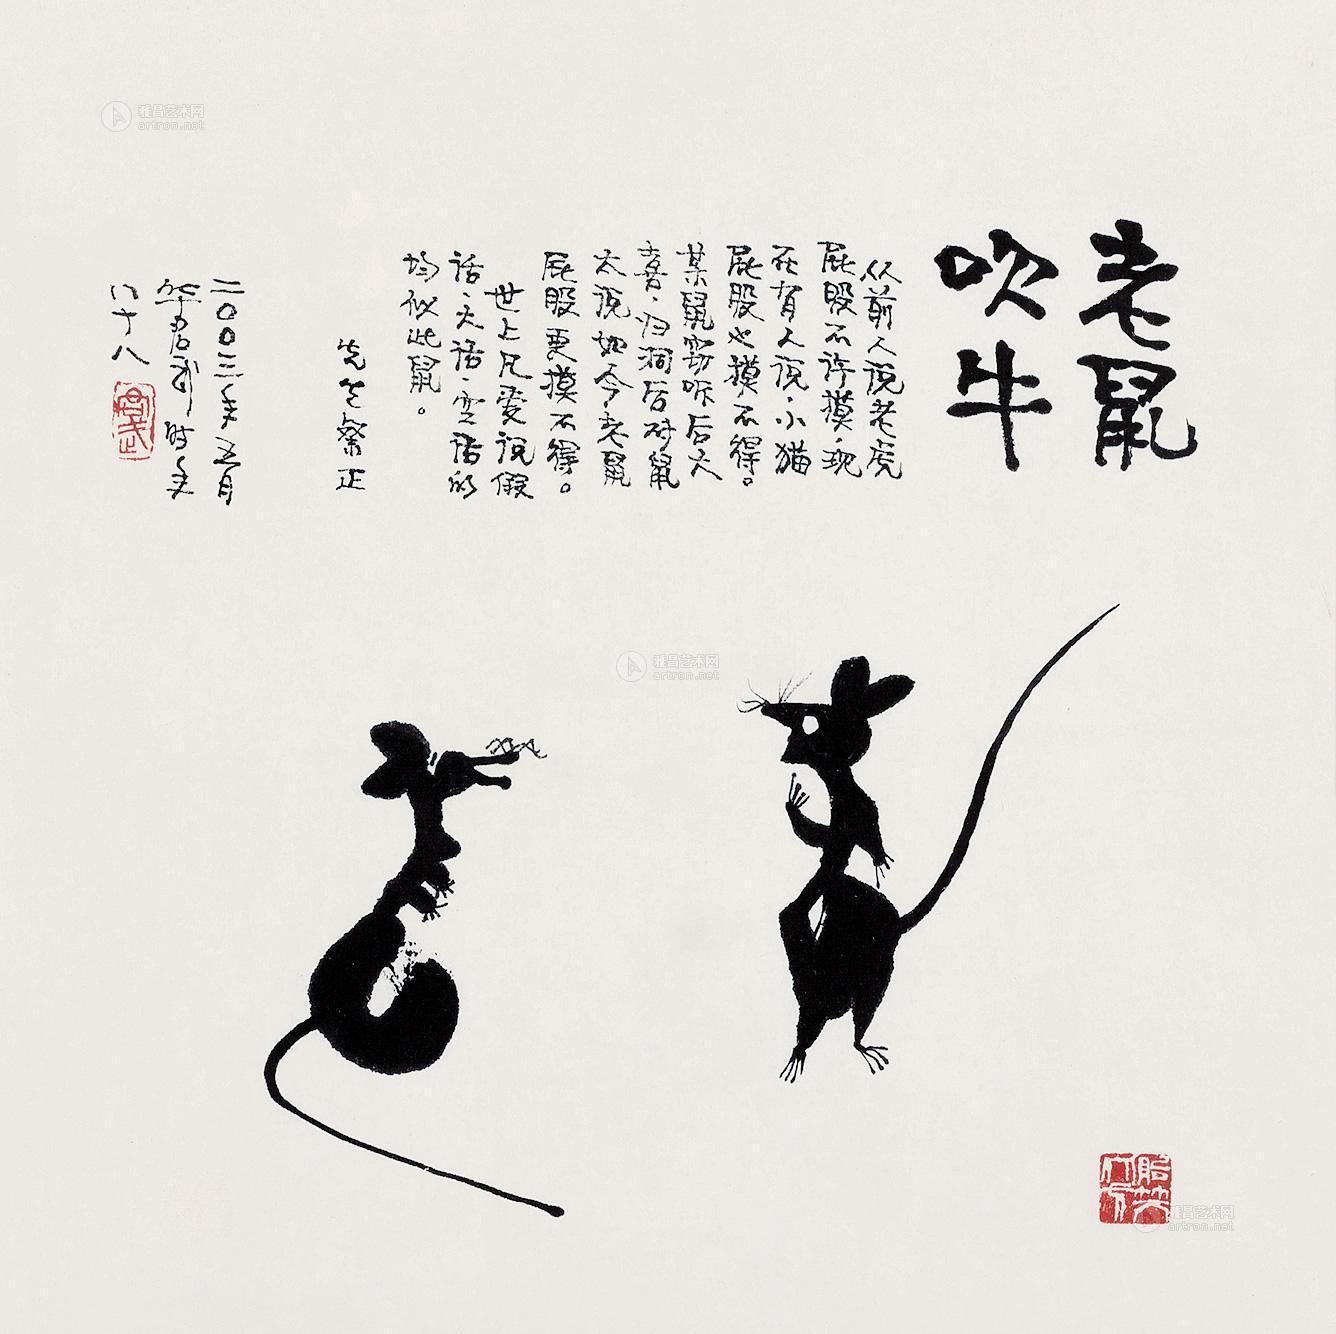 老鼠
吹牛
从前人说老虎
屁股不许摸，现
在有人说，小猫
屁股也摸不得。
某鼠窃听后大
喜，归洞后对鼠
太说如今老鼠
屁股更摸不得。
世上凡爱说假
话、大话、空话的
均似此鼠。
先生粲正
二〇〇三年五月
华君武时年
八十八
雅昌艺术网
artron.net
雅昌艺术网
artron.net
雅昌艺术网
artron.net